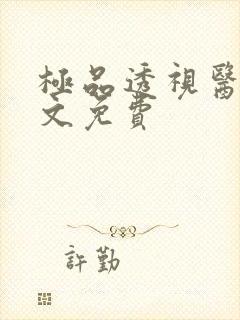 極品透視醫
文免費
許勤